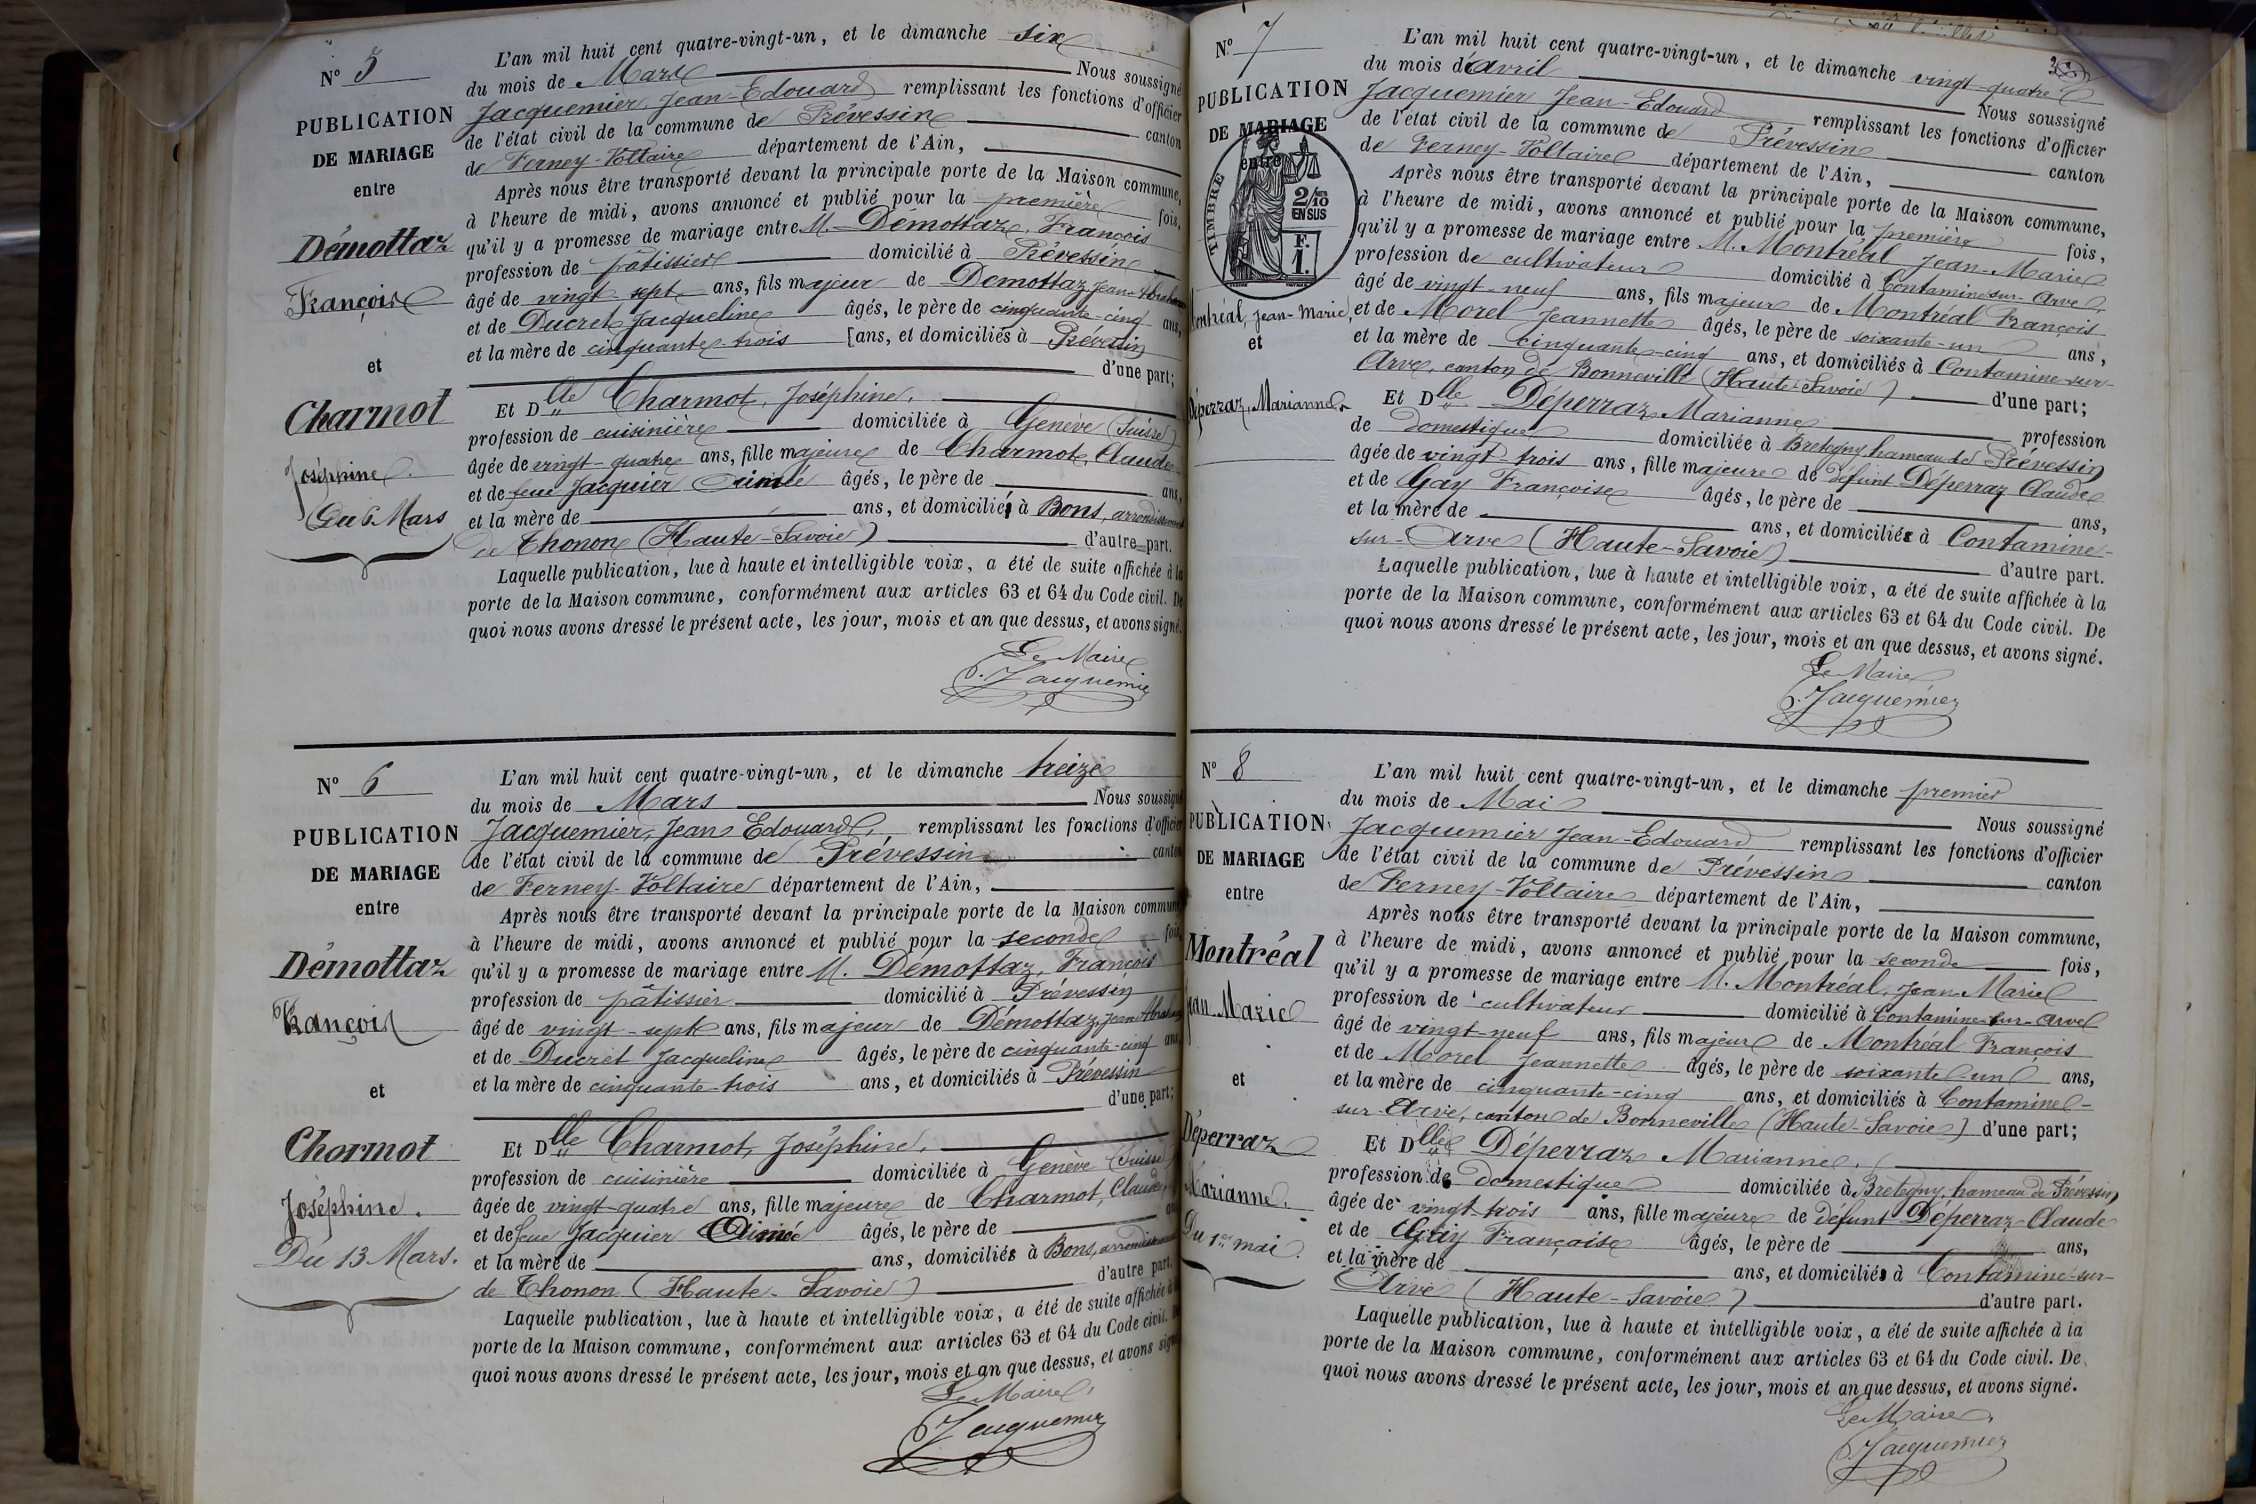 N° 5
PUBLICATION
DE MARIAGE
entre
Démottaz
François
et
Charmot
Joséphine.
Du 6 Mars
L'an mil huit cent quatre-vingt-un, et le dimanche six
du mois de Mars Nous soussigné
Jacquemier, Jean-Edouard remplissant les fonctions d'officier
de l'état civil de la commune de Prévessin canton
de Ferney-Voltaire département de l'Ain,
Après nous être transporté devant la principale porte de la Maison commune,
à l'heure de midi, avons annoncé et publié pour la première fois,
qu'il y a promesse de mariage entre M. Démottaz, François
profession de pâtissier domicilié à Prévessin
âgé de vingt-sept ans, fils majeur de Demottaz Jean-Abraham
et de Ducret Jacqueline âgés, le père de cinquante-cinq ans,
et la mère de cinquante-trois [ans, et domiciliés à Prévessin
d'une part;
Et Dlle Charmot, Joséphine,
profession de cuisinière domiciliée à Genève (Suisse)
âgée de vingt-quatre ans, fille majeure de Charmot, Claude
et de feue Jacquier Aimée âgés, le père de ans,
et la mère de ans, et domiciliés à Bons, arrondissement
de Thonon (Haute-Savoie) d'autre part.
Laquelle publication, lue à haute et intelligible voix, a été de suite affichée à la
porte de la Maison commune, conformément aux articles 63 et 64 du Code civil. De
quoi nous avons dressé le présent acte, les jour, mois et an que dessus, et avons signé.
Le Maire
Jacquemier
N° 6
PUBLICATION
DE MARIAGE
entre
Démottaz
François
et
Charmot
Joséphine.
Du 13 Mars.
L'an mil huit cent quatre-vingt-un, et le dimanche treize
du mois de Mars Nous soussigné
Jacquemier, Jean Edouard, remplissant les fonctions d'officier
de l'état civil de la commune de Prévessin canton
de Ferney-Voltaire département de l'Ain,
Après nous être transporté devant la principale porte de la Maison commune
à l'heure de midi, avons annoncé et publié pour la seconde fois
qu'il y a promesse de mariage entre M. Démottaz, François
profession de pâtissier domicilié à Prévessin
âgé de vingt-sept ans, fils majeur de Démottaz, Jean Abraham
et de Ducret Jacqueline âgés, le père de cinquante-cinq ans
et la mère de cinquante-trois ans, et domiciliés à Prévessin
d'une part;
Et Dlle Charmot, Joséphine,
profession de cuisinière domiciliée à Genève (Suisse)
âgée de vingt-quatre ans, fille majeure de Charmot, Claude,
et de feue Jacquier Aimée âgés, le père de an
et la mère de ans, domiciliés à Bons, arrondissement
de Thonon (Haute-Savoie) d'autre part.
Laquelle publication, lue à haute et intelligible voix, a été de suite affichée à
porte de la Maison commune, conformément aux articles 63 et 64 du Code civil.
quoi nous avons dressé le présent acte, les jour, mois et an que dessus, et avons signé
Le Maire,
Jacquemier
N° 7
PUBLICATION
DE MARIAGE
entre
TIMBRE
2/10
EN SUS
F.
1.
Montréal, Jean-Marie,
et
Déperraz, Marianne
L'an mil huit cent quatre-vingt-un, et le dimanche vingt-quatre
du mois d'avril Nous soussigné
Jacquemier Jean-Edouard remplissant les fonctions d'officier
de l'état civil de la commune de Prévessin canton
de Ferney-Voltaire département de l'Ain,
Après nous être transporté devant la principale porte de la Maison commune,
à l'heure de midi, avons annoncé et publié pour la première fois,
qu'il y a promesse de mariage entre M. Montréal Jean-Marie
profession de cultivateur domicilié à Contamine-sur-Arve,
âgé de vingt-neuf ans, fils majeur de Montréal François
et de Morel Jeannette âgés, le père de soixante-un ans,
et la mère de cinquante-cinq ans, et domiciliés à Contamine-sur-
Arve, canton de Bonneville (Haute-Savoie) d'une part;
Et Dlle Déperraz Marianne profession
de domestique domiciliée à Bretegny hameau de Prévessin
âgée de vingt-trois ans, fille majeure de défunt Déperraz Claude
et de Gay Françoise âgés, le père de ans,
et la mère de ans, et domiciliés à Contamine-
sur-Arve (Haute-Savoie) d'autre part.
Laquelle publication, lue à haute et intelligible voix, a été de suite affichée à la
porte de la Maison commune, conformément aux articles 63 et 64 du Code civil. De
quoi nous avons dressé le présent acte, les jour, mois et an que dessus, et avons signé.
Le Maire
Jacquemier
N° 8
PUBLICATION
DE MARIAGE
entre
Montréal
Jean Marie
et
Déperraz
Marianne.
Du 1er mai.
L'an mil huit cent quatre-vingt-un, et le dimanche premier
du mois de Mai Nous soussigné
Jacquemier Jean-Edouard remplissant les fonctions d'officier
de l'état civil de la commune de Prévessin canton
de Ferney-Voltaire département de l'Ain,
Après nous être transporté devant la principale porte de la Maison commune,
à l'heure de midi, avons annoncé et publié pour la seconde fois,
qu'il y a promesse de mariage entre M. Montréal, Jean-Marie
profession de cultivateur domicilié à Contamine-sur-Arve
âgé de vingt-neuf ans, fils majeur de Montréal François
et de Morel Jeannette âgés, le père de soixante-un ans,
et la mère de cinquante-cinq ans, et domiciliés à Contamine-
sur-Arve, canton de Bonneville (Haute-Savoie) d'une part;
Et Dlle Déperraz Marianne,
profession de domestique domiciliée à Bretegny, hameau de Prévessin,
âgée de vingt-trois ans, fille majeure de défunt Déperraz Claude
et de Gay Françoise âgés, le père de ans,
et la mère de ans, et domiciliés à Contamine-sur-
Arve (Haute-Savoie) d'autre part.
Laquelle publication, lue à haute et intelligible voix, a été de suite affichée à la
porte de la Maison commune, conformément aux articles 63 et 64 du Code civil. De
quoi nous avons dressé le présent acte, les jour, mois et an que dessus, et avons signé.
Le Maire,
Jacquemier